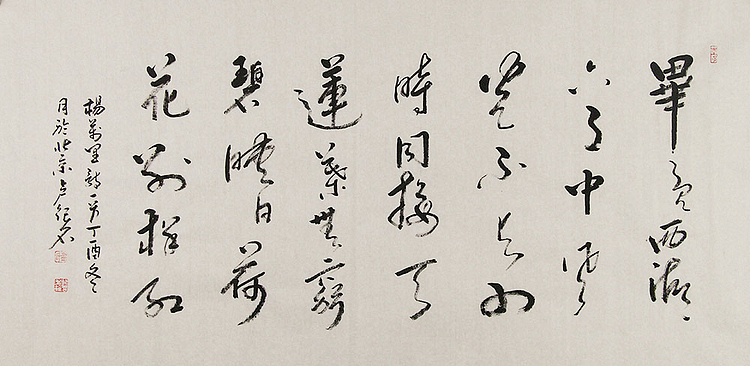 畢竟西湖
六月中風
光不與四
時同接天
蓮葉無窮
碧暎日荷
花別樣紅
楊萬里詩一首丁酉冬
月於北京